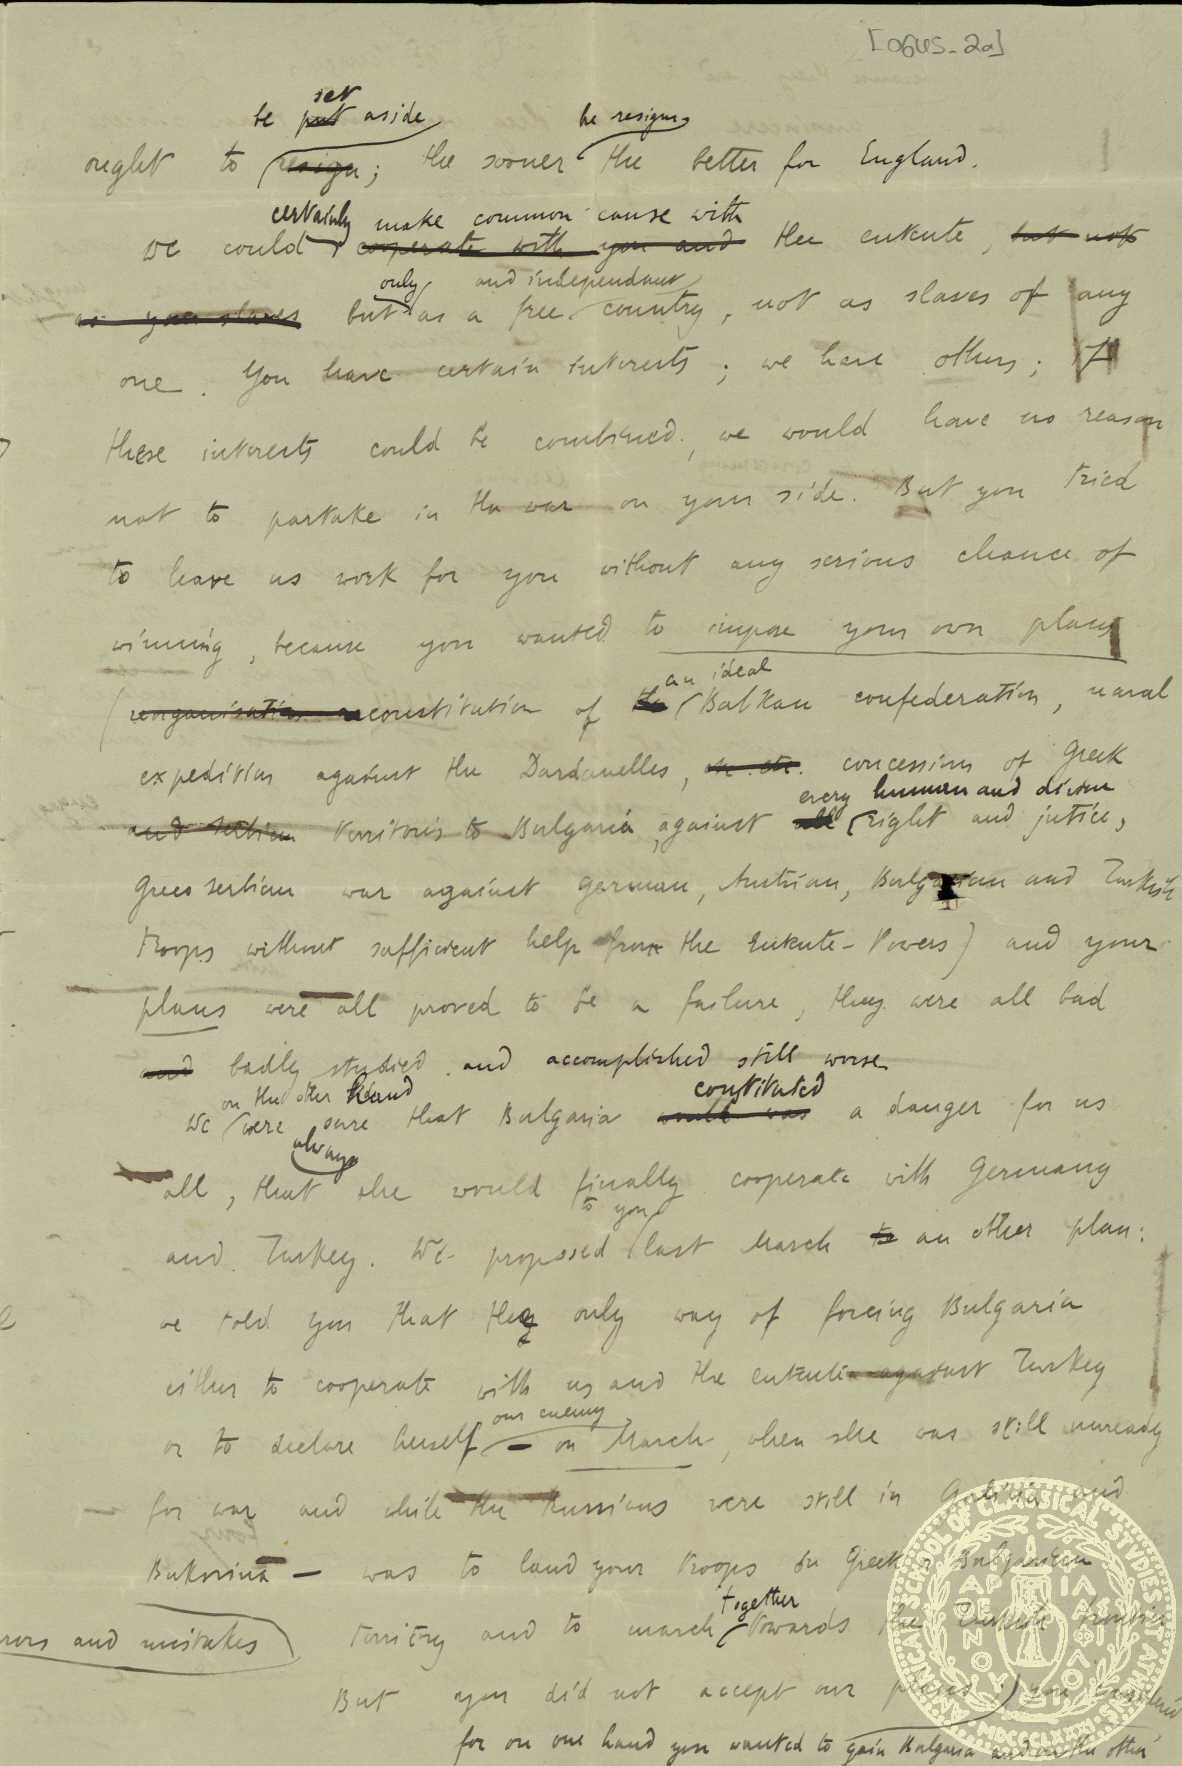 [0645-2a]
set
be put aside he resigns
ought to resign; the sooner the better for England.
certainly make common cause with
We could cooperate with you and the entente, but not
only and independant
as your slaves but as a free country, not as slaves of any
one. You have certain interests; we have others; If
these interests could be combined, we would have no reason
not to partake in the war on your side. But you tried
to leave us work for you without any serious chance of
winning, because you wanted to impose your own plans
an ideal
(reorganisation reconstitution of the Balkan confederation, naval
expedition against the Dardanelles, etc. etc. concessions of Greek
every human and divine
and serbian territories to Bulgaria, against all right and justice,
Greco serbian war against German, Austrian, Bulgarian and Turkish
troops without sufficient help from the Entente-Powers) and your
plans were all proved to be a failure, they were all bad
and badly studied and accomplished still worse
on the other hand constituted
We were sure that Bulgaria would was a danger for us
always
all, that she would finally cooperate with Germany
to you
and Turkey. We proposed last March to an other plan:
we told you that the only way of forcing Bulgaria
either to cooperate with us and the entente against Turkey
our enemy
or to declare herself – on March, when she was still unready
for war and while the Russians were still in Galicia and
Bukovina – was to land your troops in Greek or Bulgarian
together
rors and mistakes territory and to march towards the Turkish frontier
But you did not accept our plans
for on one hand you wanted to gain Bulgaria and on the other
AMERICAN SCHOOL OF CLASSICAL STUDIES AT ATHENS
MDCCCLXXXI